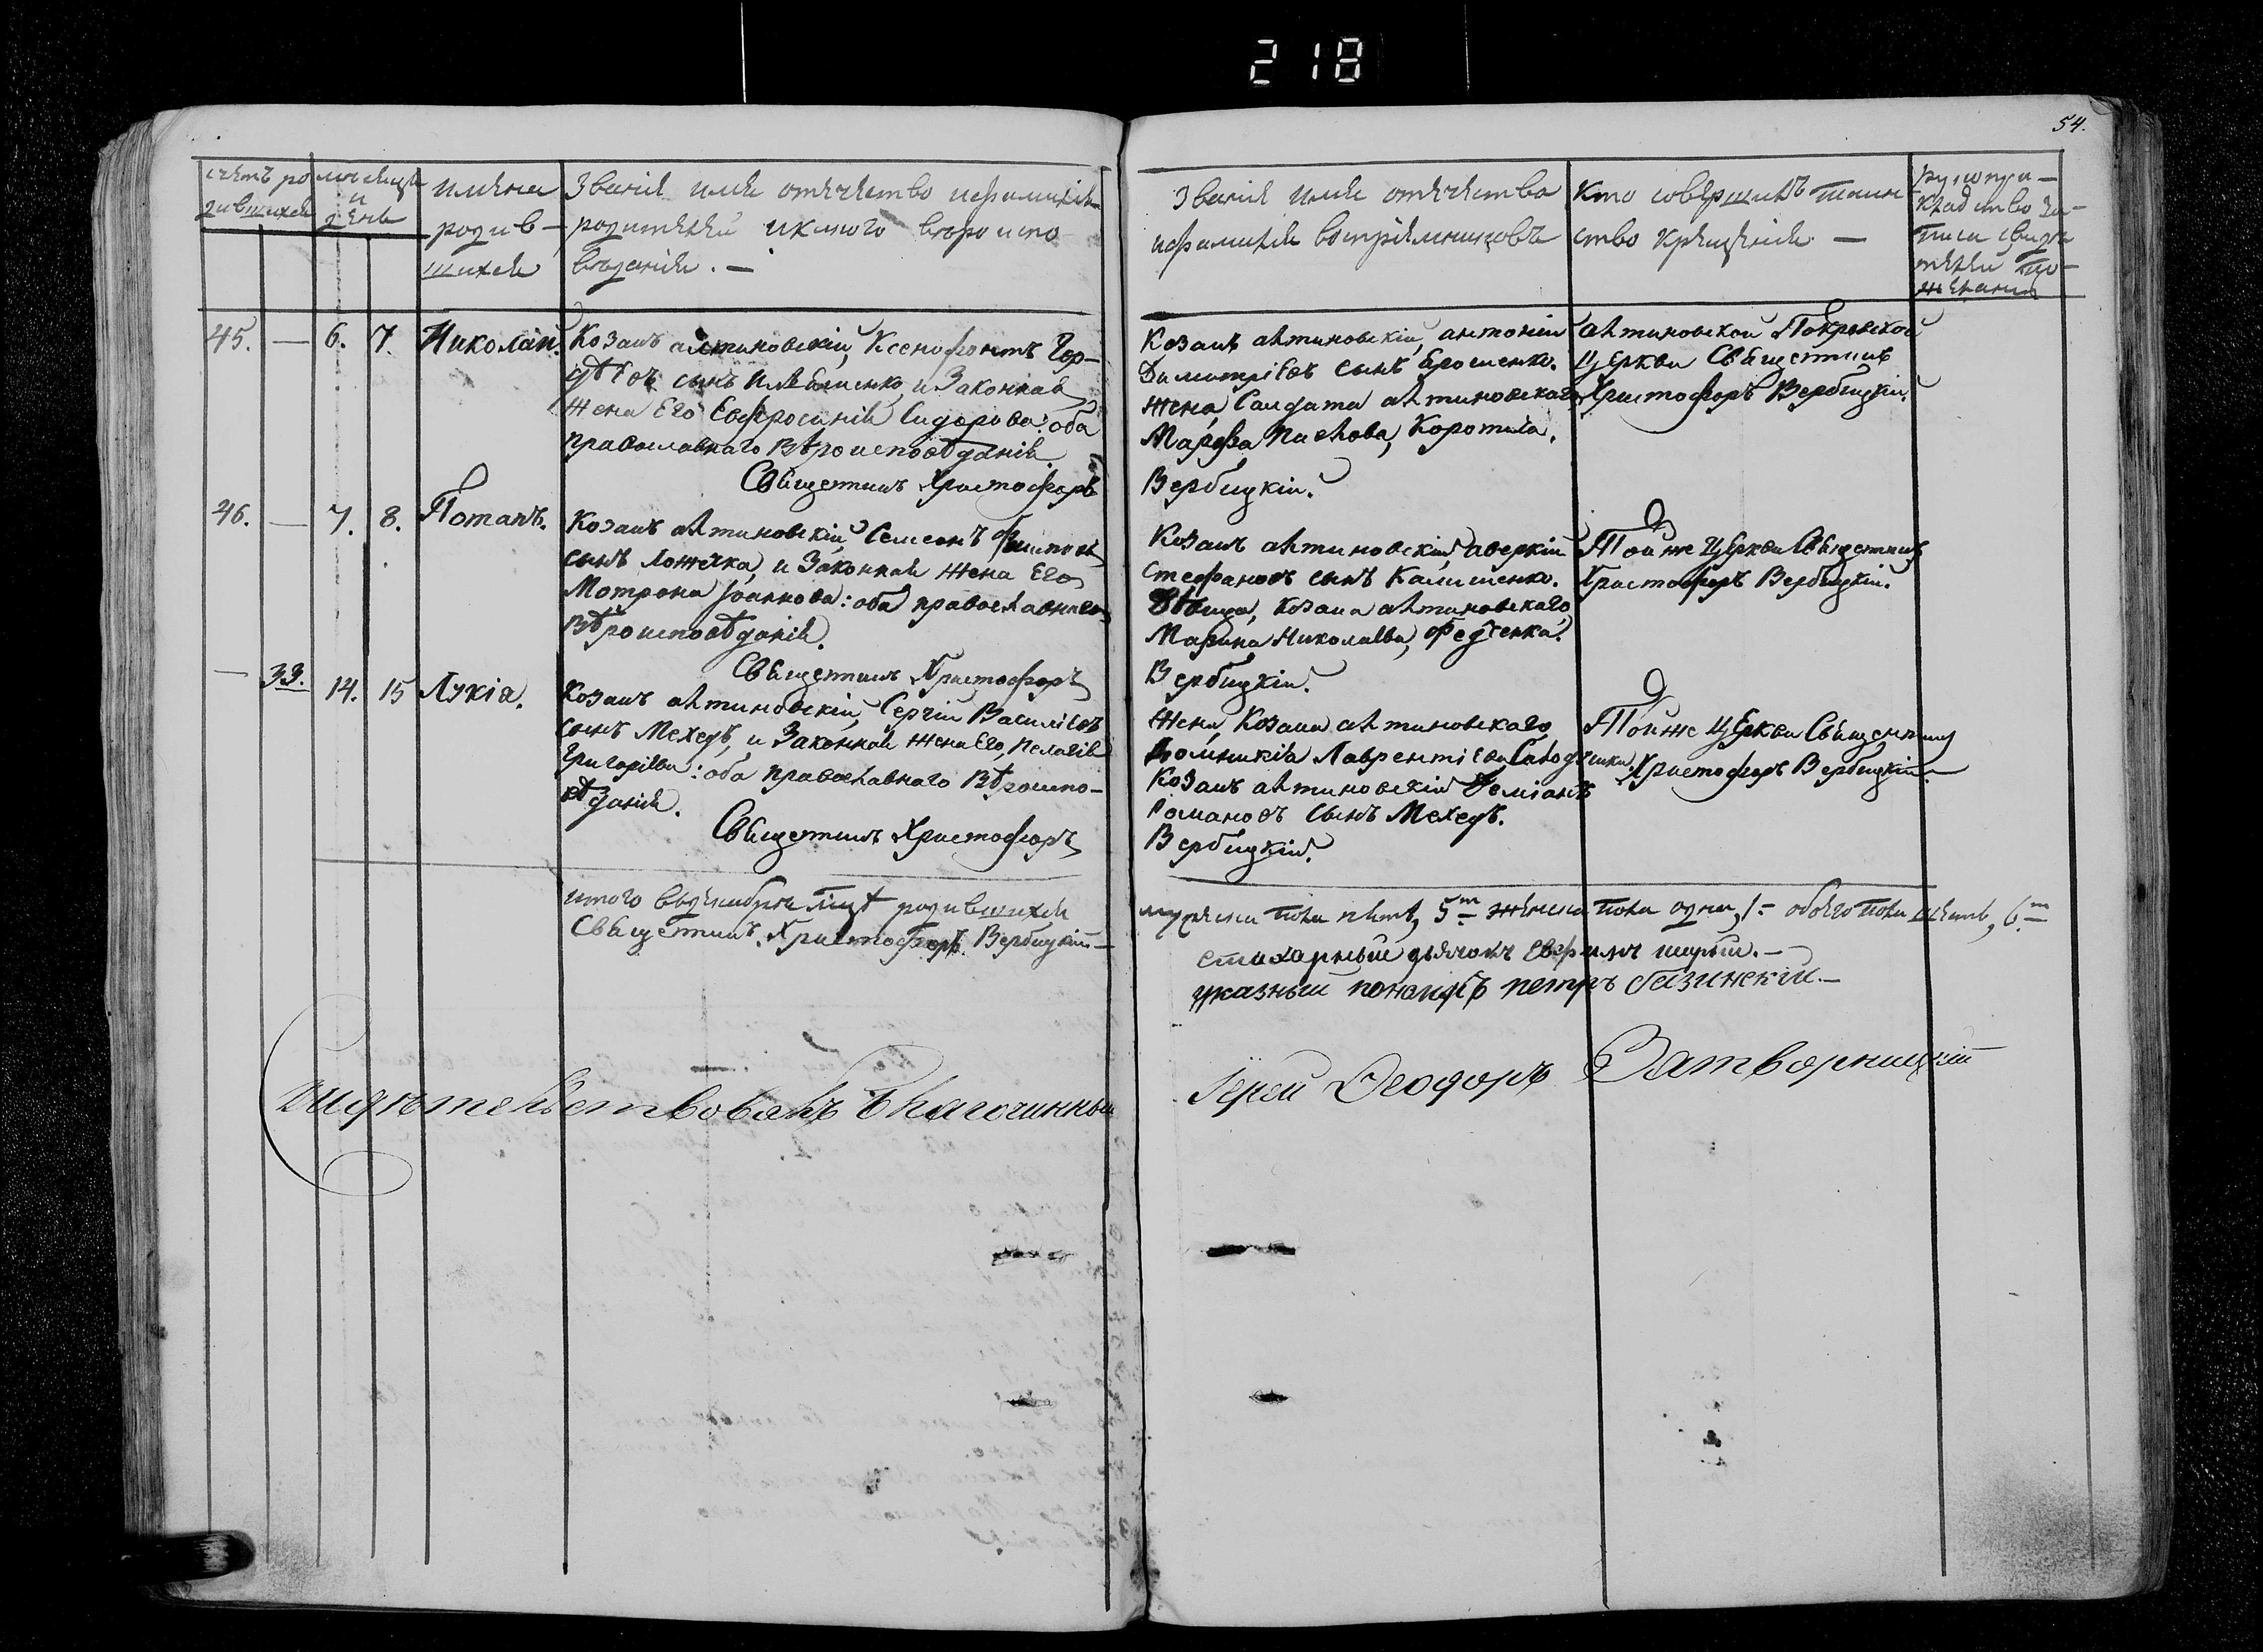 218
54.
счетъ ро
дившихся
месяцъ
и
день
имена
родив-
шихся
Званія имя отечество ифамилія
родителей икакого вѣроиспо
вѣданія. —
Званія имя отечество
ифамилія воспріемниковъ
Кто совершилъ таин
ство крещенія —
рукопри-
кладство за-
писи свиде
телей по-
желанію
45. — 6. 7. Николай.
Козакъ алтиновскій, Ксенофонтъ Гор-
дѣевъ сынъ и Законная
жена Его Евфросинія Сидорова: оба
православнаго Вѣроисповѣданія
Священникъ Христофоръ
Козакъ алтиновскій, антоній
Димитріевъ сынъ Ерошенко.
жена, Салдата алтиновскаго
Марфа Павлова, Коротька.
Вербицкій.
алтиновской Покровской
Церкви Священникъ
Христофоръ Вербицкій.
46. — 7. 8. Потапъ.
Козакъ алтиновскій, Семеонъ Филиповъ
сынъ Ложечка, и Законная жена Его
Мотрона Іоаннова: оба православнаго
Вѣроисповѣданія.
Священникъ Христофоръ
Козакъ алтиновскій, аверкій
Стефановъ сынъ Калишенко.
Дѣвица, козака алтиновскаго,
Марина Николаева, Федченка.
Вербицкій.
Тойже Церкви Священникъ
Христофоръ Вербицкій.
— 33. 14. 15 Лукіа.
Козакъ алтиновскій, Сергій Василіевъ
сынъ Мехедъ, и Законная жена Его, Пелагія
Григоріева: оба православнаго Вѣроиспо-
вѣданія.
Священникъ Христофоръ
Жена, Козака алтиновскаго,
Домникія Лаврентіева
Козакъ алтиновскій Деміанъ
Романовъ сынъ Мехедъ.
Вербицкій.
Тойже Церкви Священникъ
Христофоръ Вербицкій.
итого вдекабре мцѣ родившихся
Священникъ Христофоръ Вербицкій —
мужеска пола пять, 5 — женска пола одна, 1 — обоего пола шесть, 6.
стихарный дьячокъ Евфимъ —
указный пономарь петръ —
Свидѣтельствовалъ Благочинный
Іерей Ѳеодоръ Затворницкій